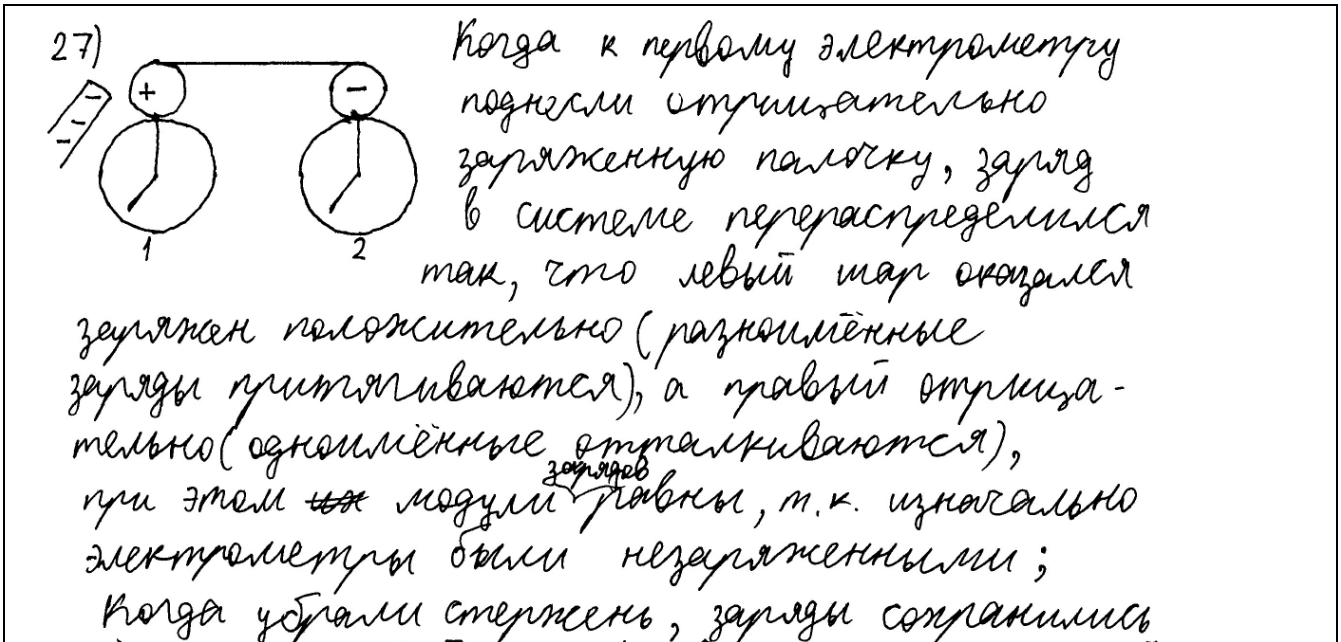 27)
+ −
− − −
1 2
Когда к первому электрометру
поднесли отрицательно
заряженную палочку, заряд
в системе перераспределился
так, что левый шар оказался
заряжен положительно (разноимённые
заряды притягиваются), а правый отрица-
тельно (одноимённые отталкиваются),
при этом модули зарядов равны, т.к. изначально
электрометры были незаряженными;
Когда убрали стержень, заряды сохранились